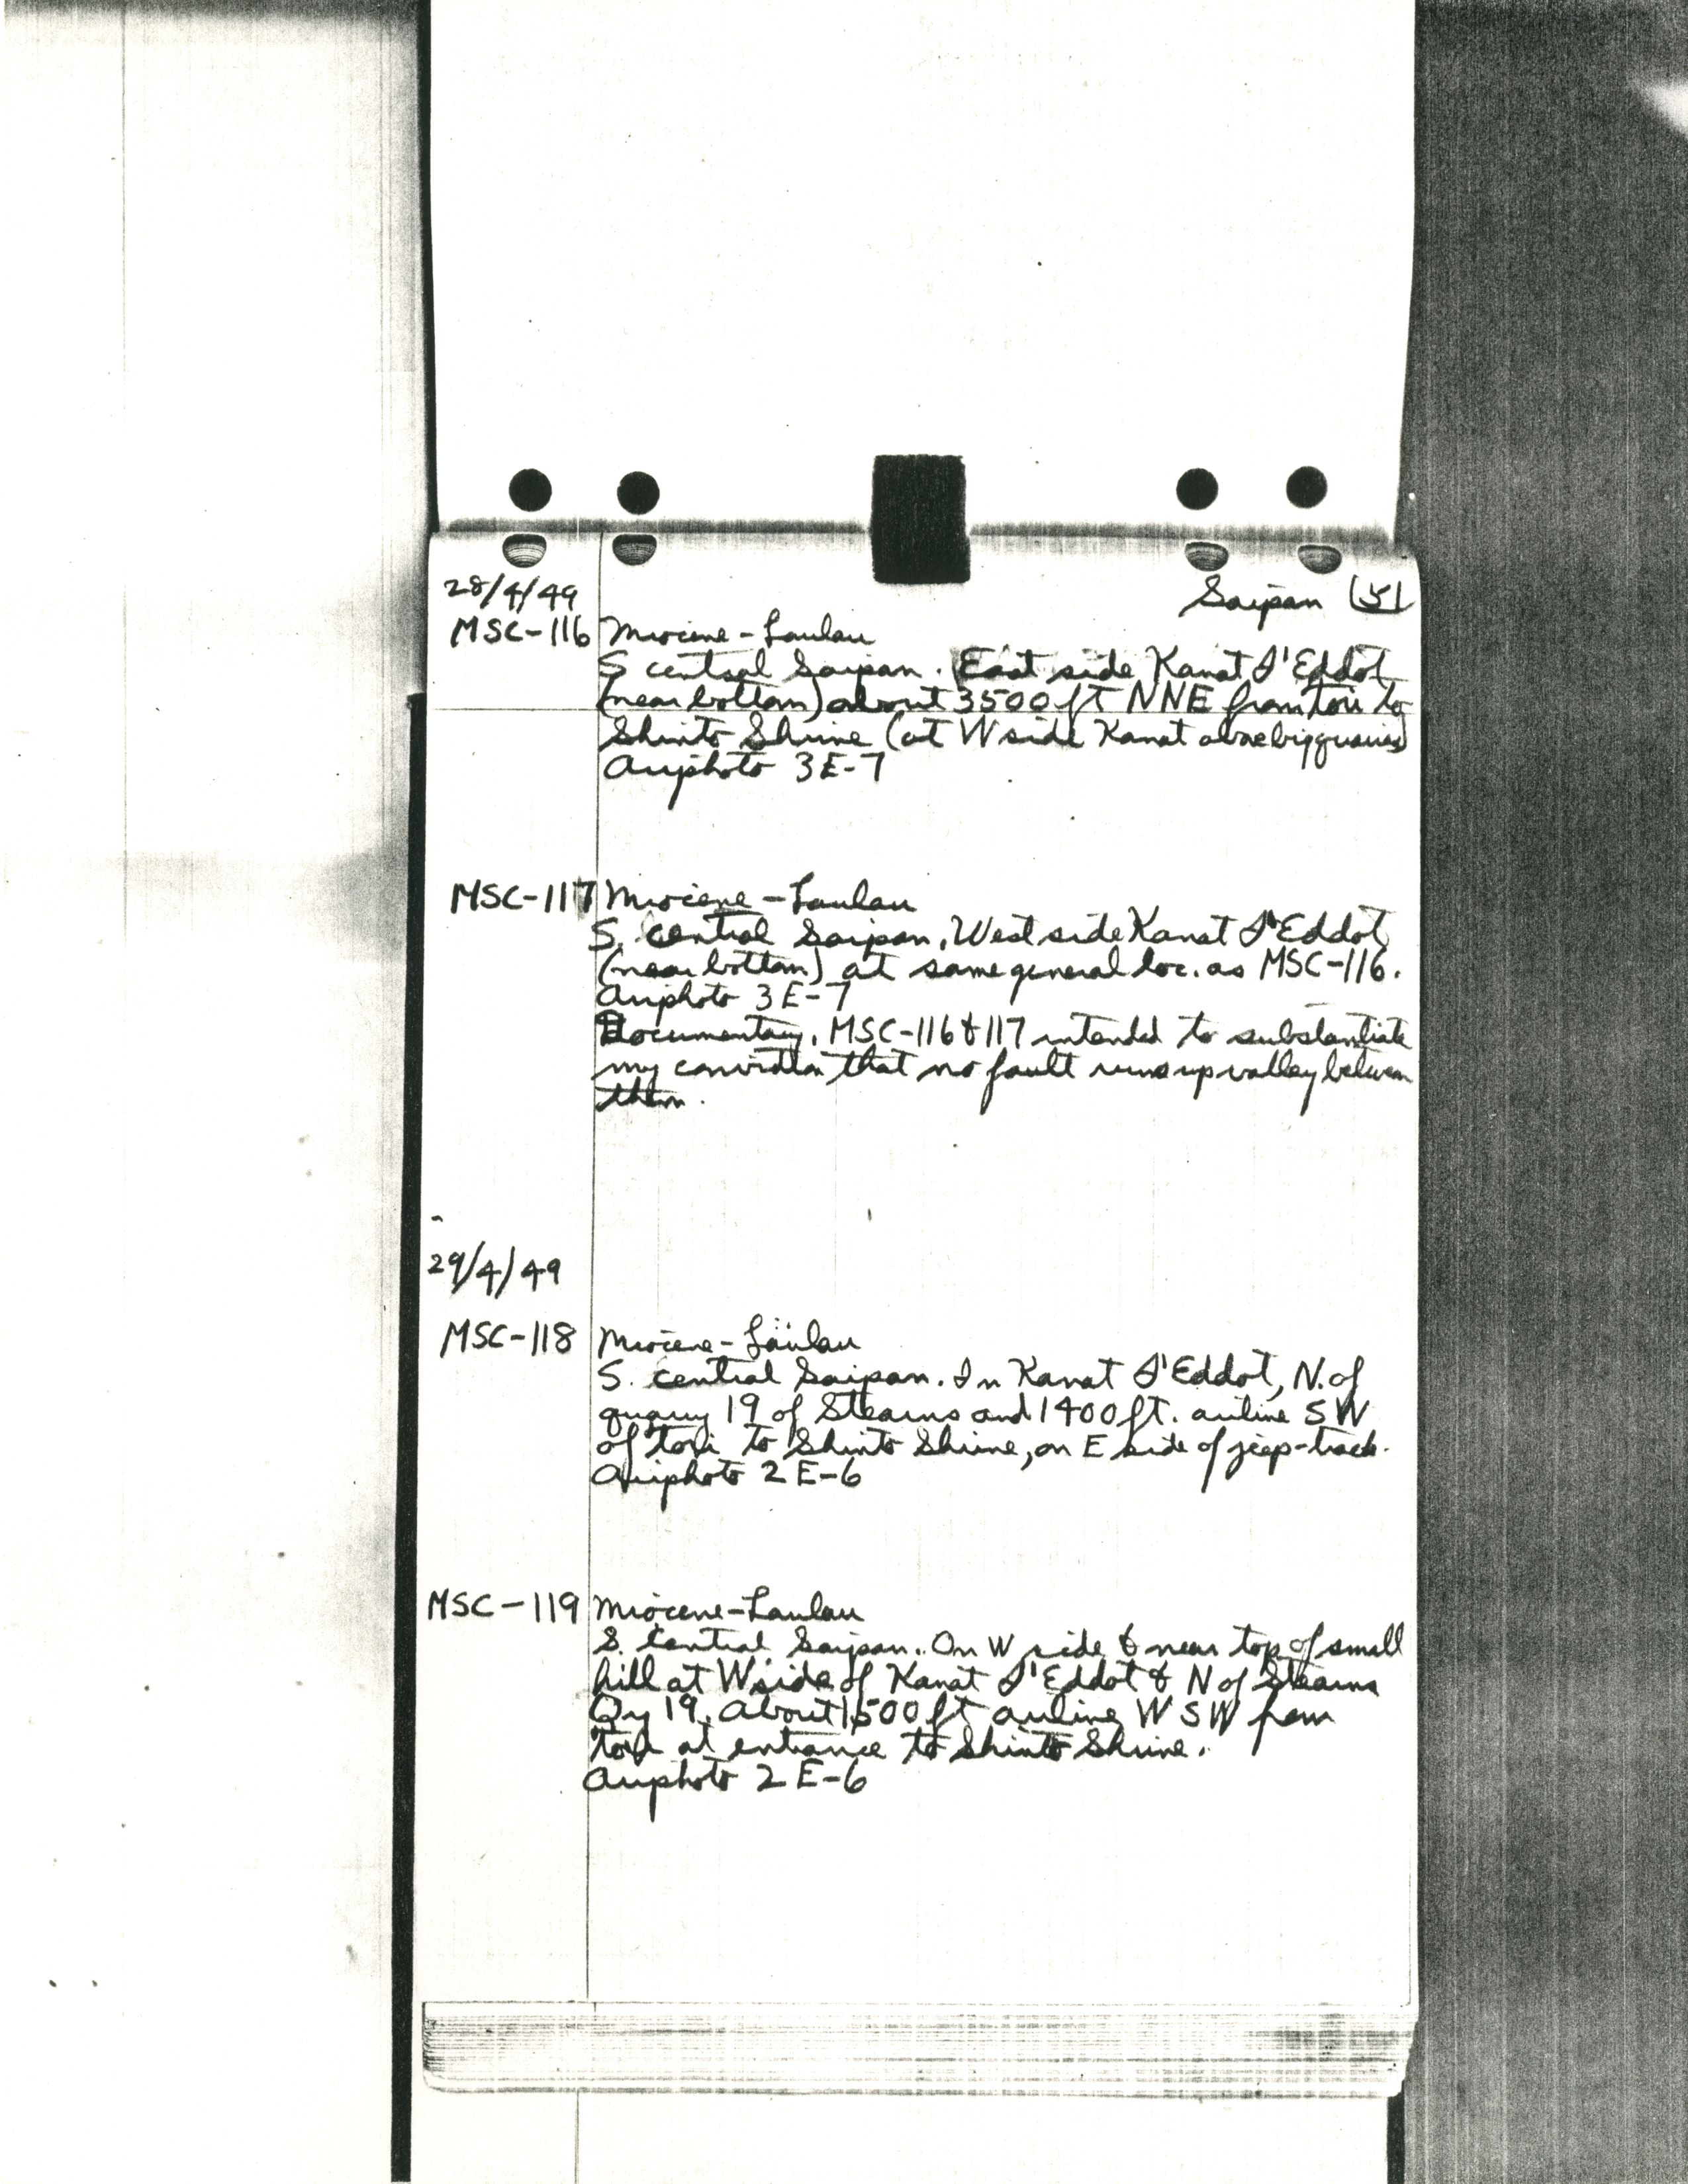 28/4/49
Saipan
MSC-116 Miocene-Laulau
S central Saipan. East side Kanat I'Eddot
(near bottom) about 3500 ft NNE from torii to
Shinto Shrine (at W side Kanat above big quarries)
Airphoto 3E-7
MSC-117 Miocene-Laulau
S. central Saipan. West side Kanat I'Eddot
(near bottom) at same general loc. as MSC-116.
Airphoto 3E-7
Documentary. MSC-116 & 117 intended to substantiate
my conviction that no fault runs up valley between
them.
29/4/49
MSC-118 Miocene-Laulau
S. central Saipan. In Kanat I'Eddot, N. of
quarry 19 of Stearns and 1400 ft. airline SW
of torii to Shinto Shrine, on E side of jeep-track.
Airphoto 2E-6
MSC-119 Miocene-Laulau
S. Central Saipan. On W side & near top of small
hill at W side of Kanat I'Eddot & N of Stearns
Qy 19. About 1500 ft airline WSW from
torii at entrance to Shinto Shrine.
Airphoto 2E-6